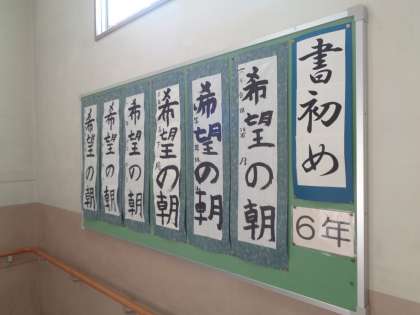 書初め
6年
希望の朝
希望の朝
希望の朝
希望の朝
希望の朝
希望の朝
希望の朝